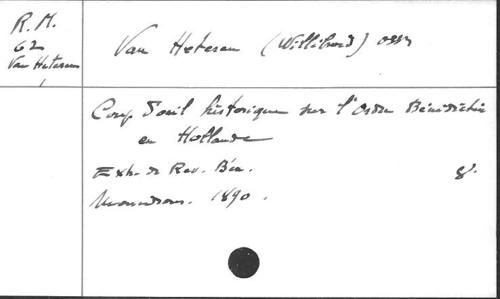 R. M.
62
Van Heteren
Van Heteren (Willibrord) OSB
Coup d'oeil historique sur l'Ordre Bénédictin
en Hollande
Extr. de Rev. Bén. 8°.
1890.